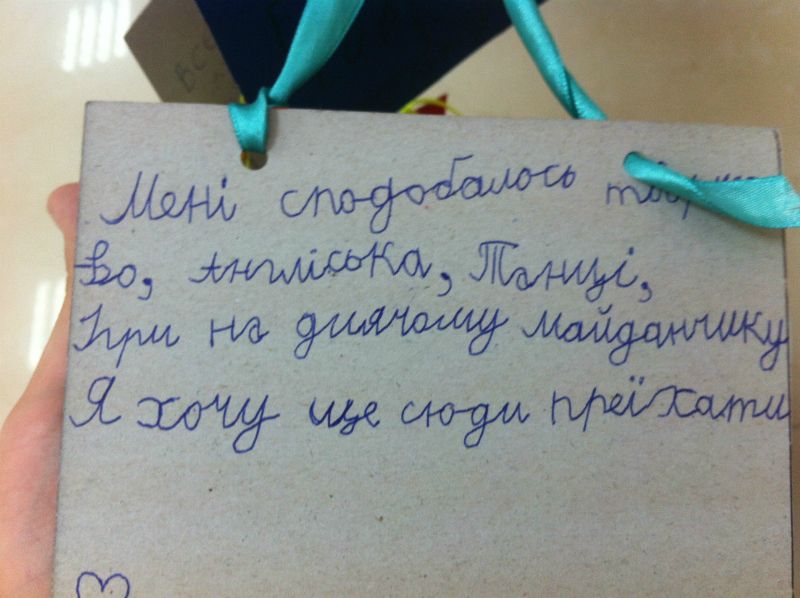 Мені сподобалось
во, Англіська, Танці,
Ігри на диячому майданчику
Я хочу ще сюди преїхати